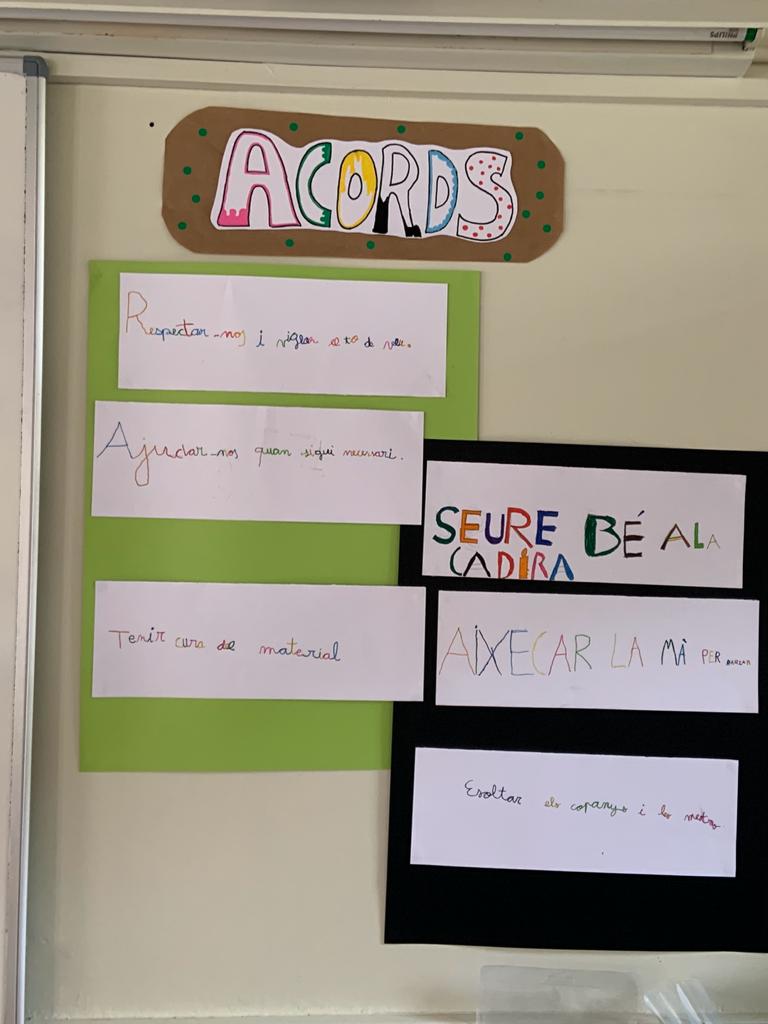 PHILIPS
ACORDS
Respectar-nos i vigilar el to de veu.
Ajudar-nos quan sigui necessari.
Tenir cura del material
SEURE BÉ A LA
CADIRA
AIXECAR LA MÀ PER
Escoltar els copanys i les mestres